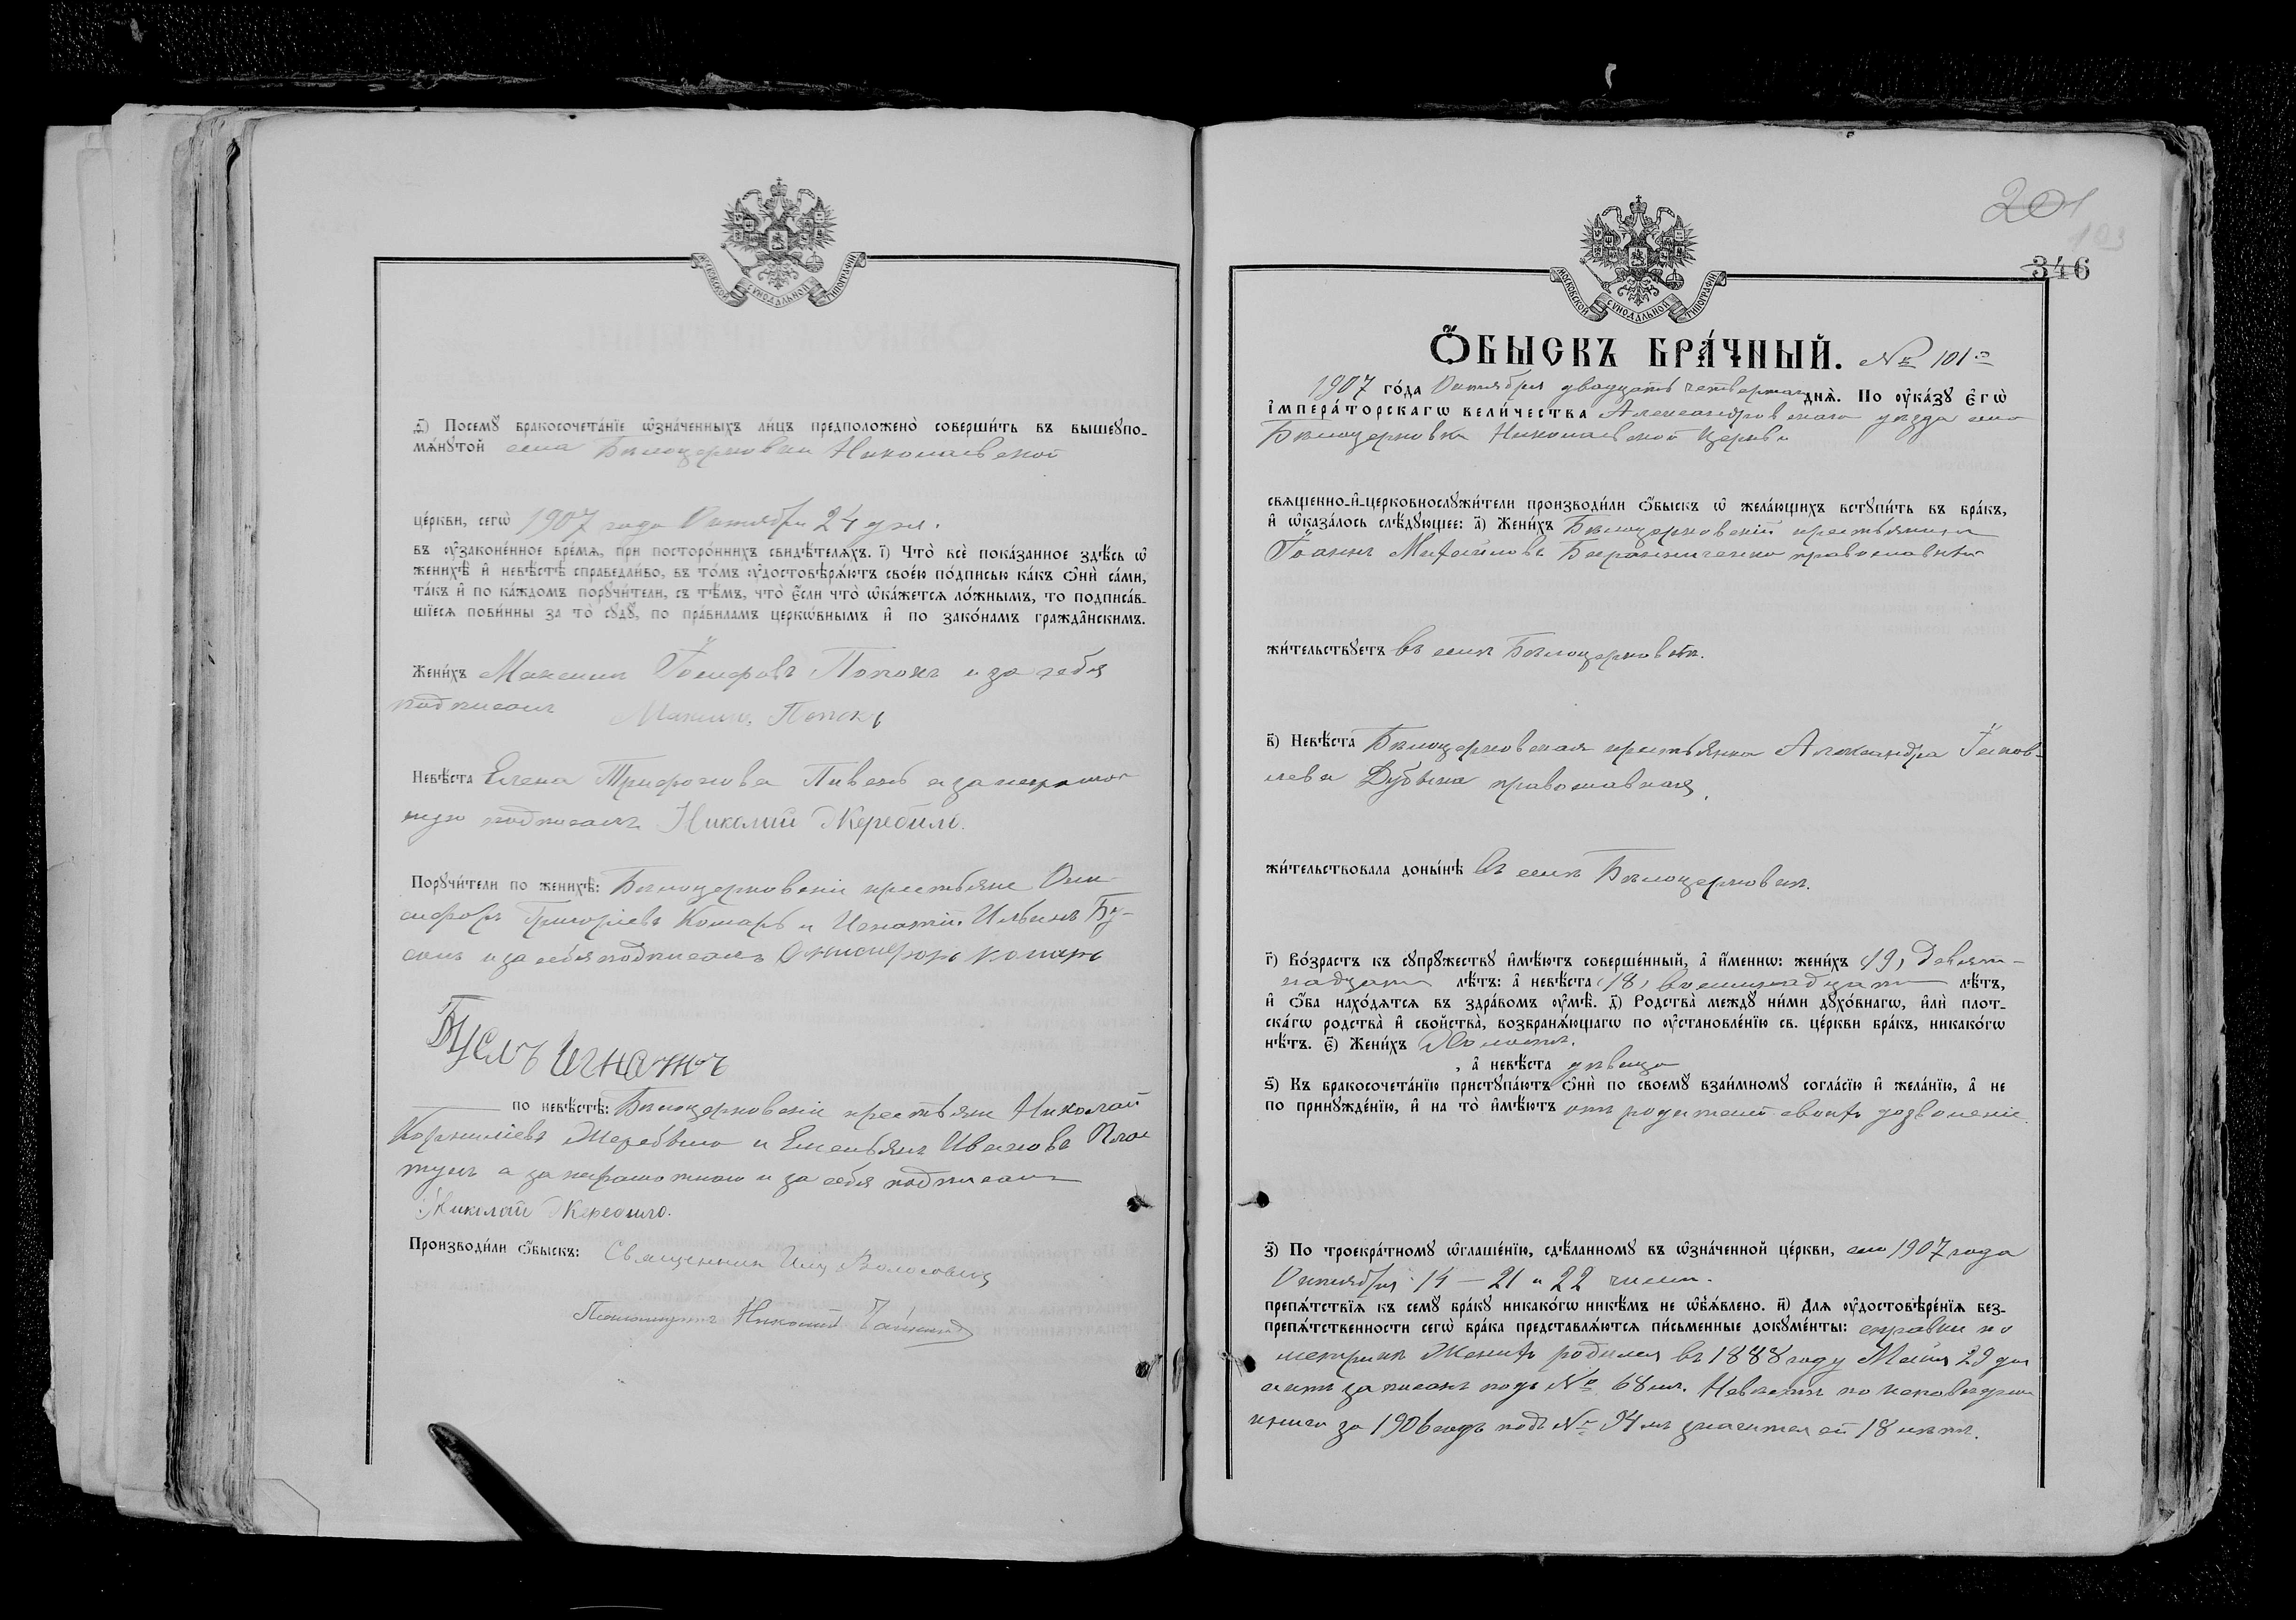 МОСКОВСКОЙ СѴНОДАЛЬНОЙ ТИПОГРАФІИ
Ѳ҃) Посемꙋ бракосочета́нїе ѡ҆зна́ченныхъ ли́цъ предположено̀ соверши́ть въ вышеꙋпо-
мѧ́нꙋтой села Бѣлоцерковки Николаевской
це́ркви, сегѡ̀ 1907 года Октября 24 дня.
въ оу҆зако́ненное вре́мѧ, при посторо́ннихъ свидѣ́телѧхъ. і҃) Что̀ всѐ пока́занное здѣ́сь ѡ҆
женихѣ̀ и҆ невѣ́стѣ справедли́во, въ то́мъ оу҆достовѣрѧ́ютъ свое́ю по́дписью ка́къ ѻ҆нѝ са́ми,
та́къ и҆ по ка́ждомъ порꙋчи́тели, съ тѣ́мъ, что̀ є҆́сли что̀ ѡ҆ка́жетсѧ ло́жнымъ, то подписа́в-
шїесѧ пови́нны за то̀ сꙋдꙋ̀, по пра́виламъ церко́внымъ и҆ по зако́намъ гражда̂нскимъ.
Жени́хъ Максимъ Іосифовъ Попокъ и за себя
подписалъ Максимъ Попокъ
Невѣ́ста Елена Трифонова Пивень а за неграмот
ную подписалъ Николай Жеребило.
Порꙋчи́тели по женихѣ̀: Бѣлоцерковскіе крестьяне Они
сифоръ Григоріевъ Комаръ и Игнатій Ильинъ Бу-
силъ и за себя подписалъ Онисифоръ Комаръ
Бусилъ Игнатъ
по невѣ́стѣ: Бѣлоцерковскіе крестьяне Николай
Корниліевъ Жеребило и Емельянъ Ивановъ
а за неграмотнаго и за себя подписалъ
Николай Жеребило.
Производи́ли ѻ҆́быскъ: Священникъ
Псаломщикъ Николай
201
103
346
МОСКОВСКОЙ СѴНОДАЛЬНОЙ ТИПОГРАФІИ
Ѻ҆́БЫСКЪ БРА́ЧНЫЙ. № 101й
1907 го́да Октября двадцать четвертаго днѧ̀. По оу҆ка́зꙋ Є҆гѡ̀
і҆мпера́торскагѡ вели́чества Александровскаго уѣзда села
Бѣлоцерковки Николаевской церкви
свѧще́нно-и҆-церковнослꙋжи́тели производи́ли ѻ҆́быскъ ѡ҆ жела́ющихъ встꙋпи́ть въ бра́къ,
и҆ ѡ҆каза́лось слѣ́дꙋющее: а҃) Жени́хъ Бѣлоцерковскій крестьянинъ
Іоаннъ Михайловъ православный
жи́тельствꙋетъ въ селѣ Бѣлоцерковкѣ.
в҃) Невѣ́ста Бѣлоцерковская крестьянка Александра Іаков-
лева православная,
жи́тельствовала доны́нѣ въ селѣ Бѣлоцерковкѣ.
г҃) Во́зрастъ къ сꙋпрꙋ́жествꙋ и҆мѣ́ютъ соверше́нный, а҆ и҆́меннѡ: жени́хъ (19) девят-
надцати лѣ́тъ: а҆ невѣ́ста (18) восемнадцати лѣ́тъ,
и҆ ѻ҆́ба нахо́дѧтсѧ въ здра́вомъ оу҆мѣ̀. д҃) Родства̀ междꙋ̀ ни́ми дꙋхо́внагѡ, и҆лѝ плот-
ска́гѡ родства̀ и҆ свойства̀, возбранѧ́ющагѡ по оу҆становле́нїю св. це́ркви бра́къ, никако́гѡ
нѣ́тъ. є҃) Жени́хъ Холостъ.
, а҆ невѣ́ста дѣвица
ѕ҃) Къ бракосочета́нїю пристꙋпа́ютъ ѻ҆нѝ по своемꙋ̀ взаи́мномꙋ согла́сїю и҆ жела́нїю, а҆ не
по принꙋжде́нїю, и҆ на то̀ и҆мѣ́ютъ отъ родителей своихъ дозволеніе.
з҃) По троекра́тномꙋ ѡ҆глаше́нїю, сдѣ́ланномꙋ въ ѡ҆зна́ченной це́ркви, сего 1907 года
Октября 14 — 21 и 22 числа.
препѧ́тствїѧ къ семꙋ̀ бра́кꙋ никако́гѡ никѣ́мъ не ѡ҆б̾ѧ́влено. и҃) Длѧ оу҆достовѣре́нїѧ без-
препѧ́тственности сегѡ̀ бра́ка представлѧ́ютсѧ пи́сьменные докꙋме́нты: справки по
метрикѣ Женихъ родился въ 1888 году Мая 29 дня
актъ записанъ подъ № 68мъ. Невѣста по исповѣдной
книгѣ за 1906 годъ подъ № 94мъ значится ей 18 лѣтъ.